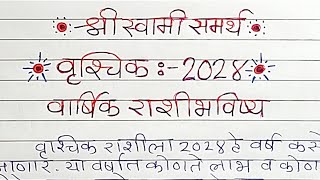 श्री स्वामी समर्थ
वृश्चिक :- 2028
वार्षिक राशीभविष्य
वृश्चिक राशीला 2028 हे वर्ष कसे
जाणार. या वर्षात कोणते लाभ व कोण